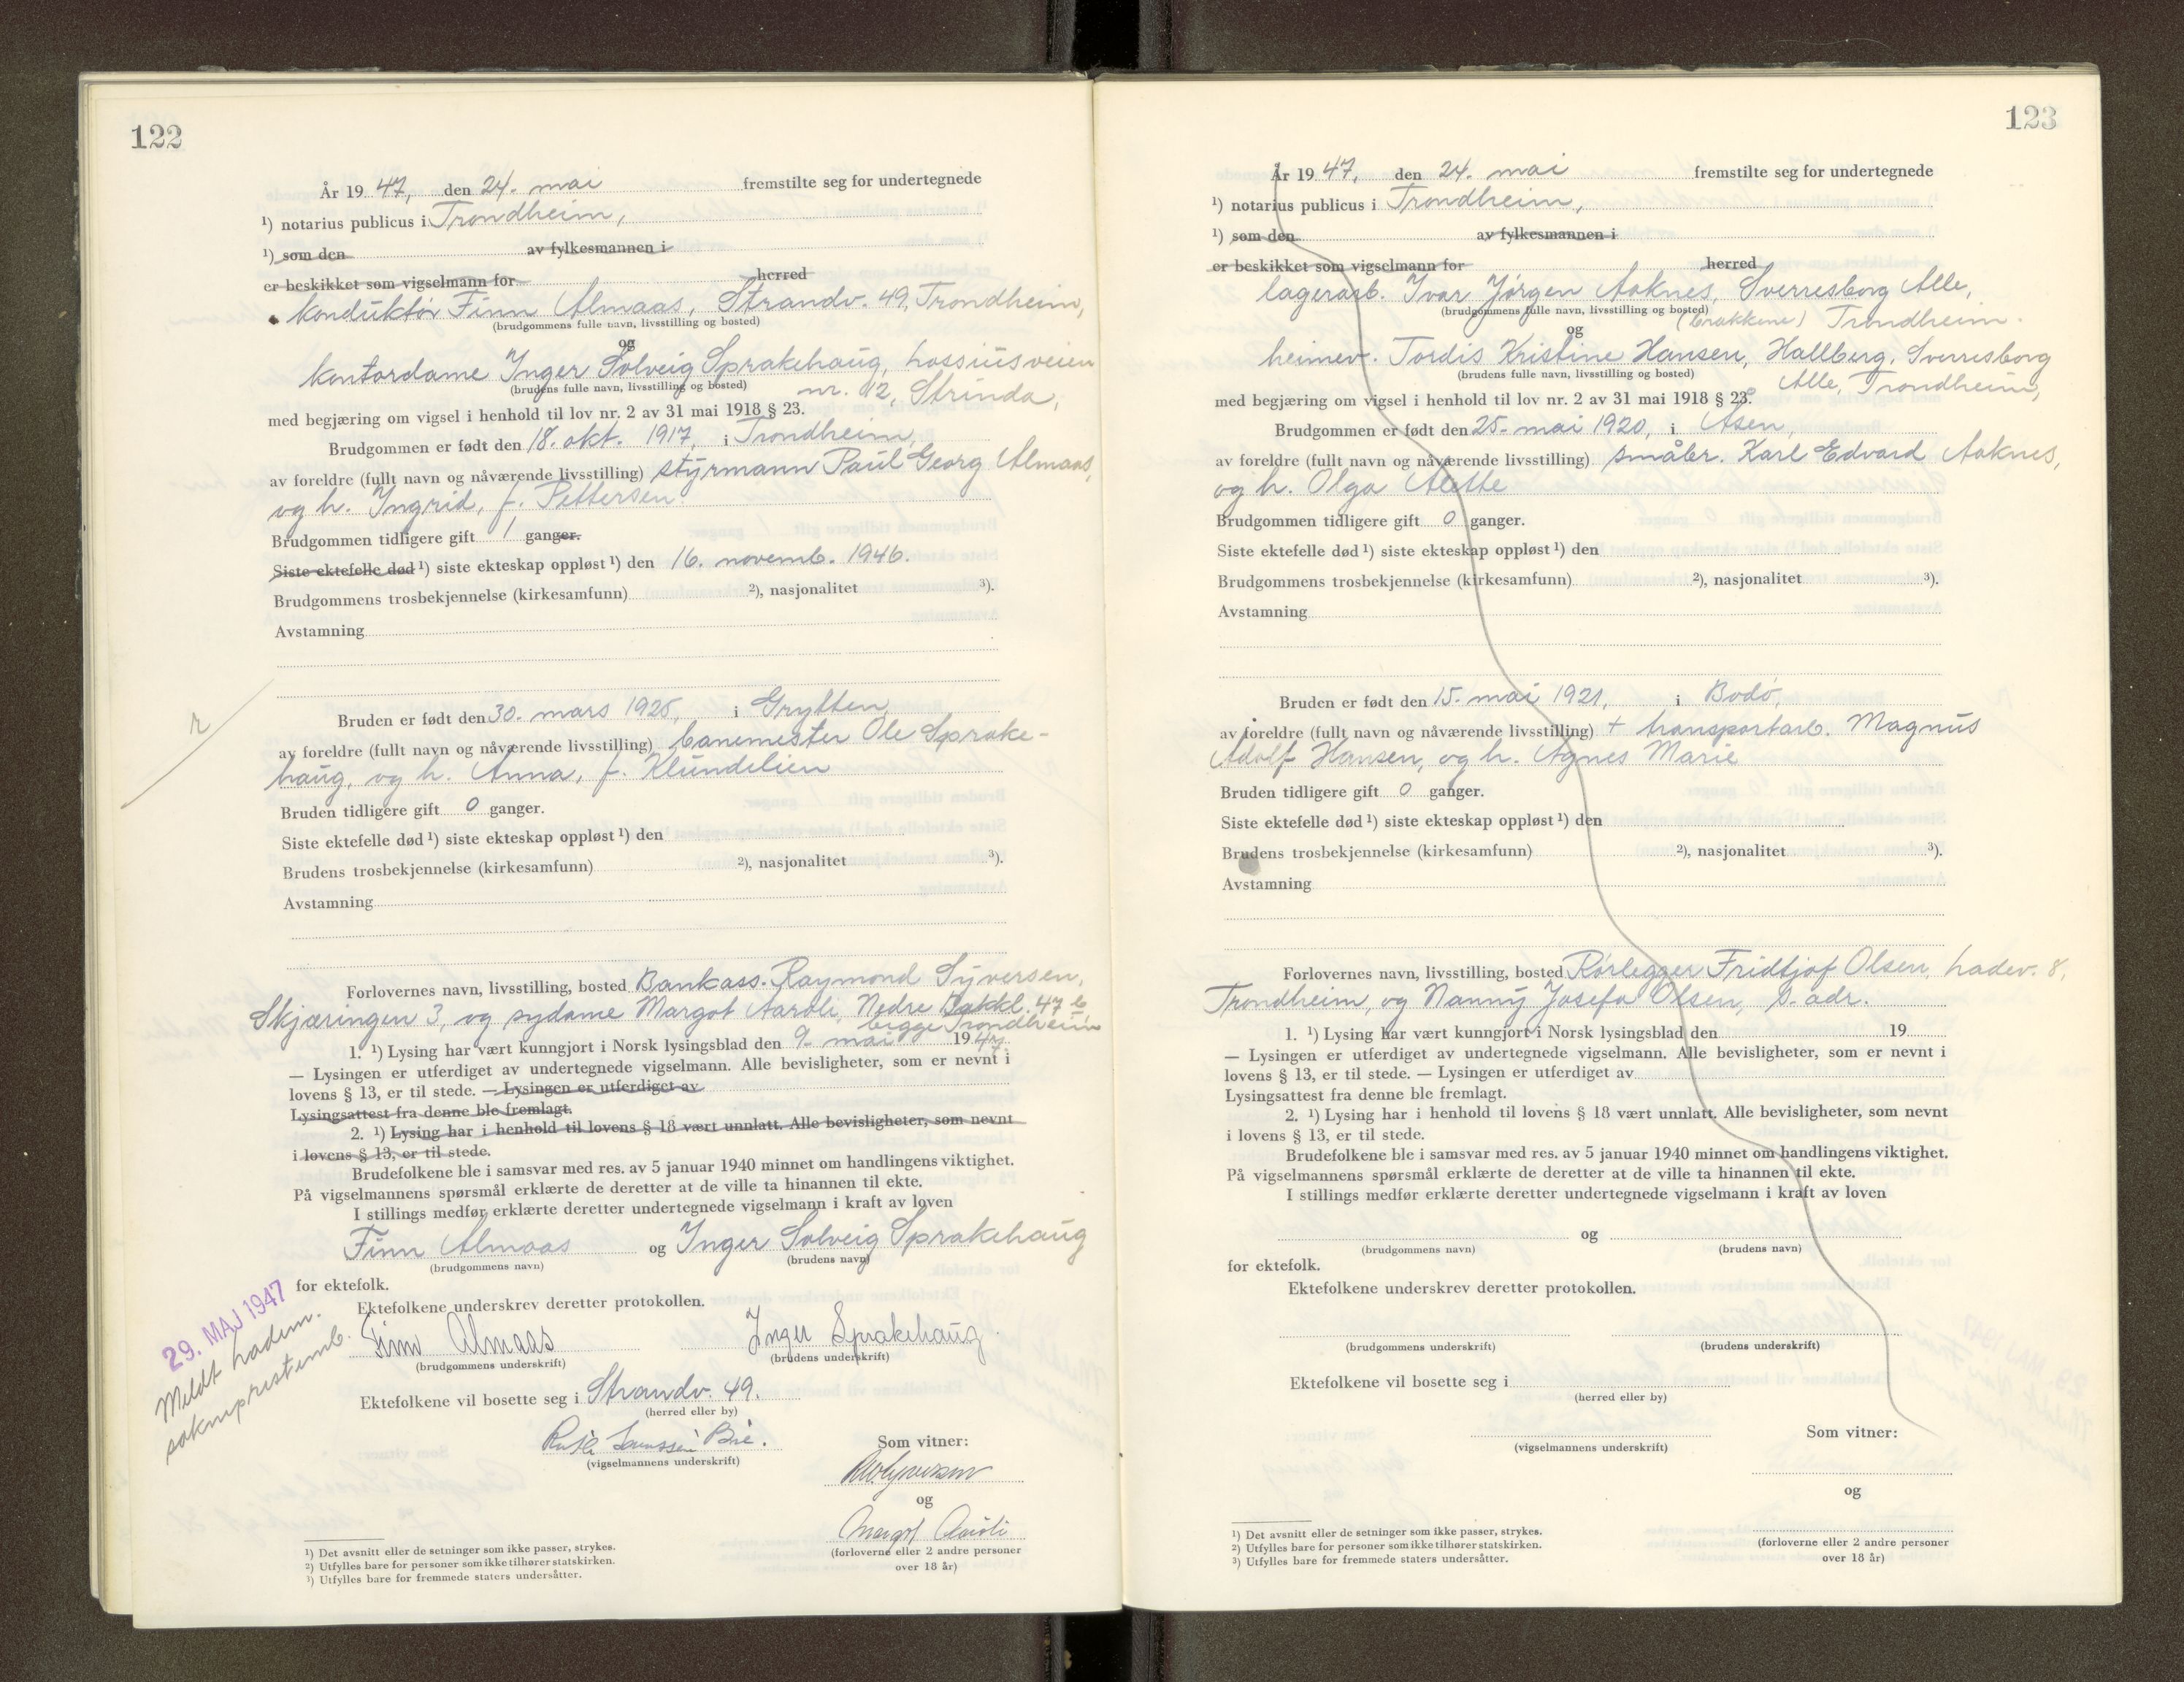 122
År 1947, den 24. mai fremstilte seg for undertegnede
¹) notarius publicus i Trondheim,
¹) som den av fylkesmannen i
er beskikket som vigselmann for herred
konduktör Finn Almaas, Strandv. 49, Trondheim,
(brudgommens fulle navn, livsstilling og bosted)
og
kontordame Inger Solveig Sprakehaug, Lossiusveien
(brudens fulle navn, livsstilling og bosted) nr. 12, Strinda,
med begjæring om vigsel i henhold til lov nr. 2 av 31 mai 1918 § 23.
Brudgommen er født den 18. okt. 1917, i Trondheim,
av foreldre (fullt navn og nåværende livsstilling) styrmann Paul Georg Almaas,
og h. Ingrid, f. Pettersen.
Brudgommen tidligere gift 1 ganger.
Siste ektefelle død ¹) siste ekteskap oppløst ¹) den 16. novemb. 1946.
Brudgommens trosbekjennelse (kirkesamfunn) ²), nasjonalitet ³).
Avstamning
r
Bruden er født den 30. mars 1925, i Grytten,
av foreldre (fullt navn og nåværende livsstilling) banemester Ole Sprake-
haug, og h. Anna, f. Klundelien
Bruden tidligere gift 0 ganger.
Siste ektefelle død ¹) siste ekteskap oppløst ¹) den
Brudens trosbekjennelse (kirkesamfunn) ²), nasjonalitet ³).
Avstamning
Forlovernes navn, livsstilling, bosted Bankass. Raymond Syversen,
Skjæringen 3, og sydame Margot Aaroli, Nedre Bakkl. 47 b,
begge Trondheim
1. ¹) Lysing har vært kunngjort i Norsk lysingsblad den 9. mai 1947.
— Lysingen er utferdiget av undertegnede vigselmann. Alle bevisligheter, som er nevnt i
lovens § 13, er til stede. — Lysingen er utferdiget av
Lysingsattest fra denne ble fremlagt.
2. ¹) Lysing har i henhold til lovens § 18 vært unnlatt. Alle bevisligheter, som nevnt
i lovens § 13, er til stede.
Brudefolkene ble i samsvar med res. av 5 januar 1940 minnet om handlingens viktighet.
På vigselmannens spørsmål erklærte de deretter at de ville ta hinannen til ekte.
I stillings medfør erklærte deretter undertegnede vigselmann i kraft av loven
Finn Almaas og Inger Solveig Sprakehaug
(brudgommens navn) (brudens navn)
for ektefolk.
29. MAJ 1947
Meldt Ladem.
soknprestemb.
Ektefolkene underskrev deretter protokollen.
Finn Almaas Inger Sprakehaug
(brudgommens underskrift) (brudens underskrift)
Ektefolkene vil bosette seg i Strandv. 49.
(herred eller by)
(vigselmannens underskrift)
Som vitner:
og
Margot Aaroli
(forloverne eller 2 andre personer
over 18 år)
¹) Det avsnitt eller de setninger som ikke passer, strykes.
²) Utfylles bare for personer som ikke tilhører statskirken.
³) Utfylles bare for fremmede staters undersåtter.
123
År 1947, den 24. mai fremstilte seg for undertegnede
¹) notarius publicus i Trondheim,
¹) som den av fylkesmannen i
er beskikket som vigselmann for herred
lagerarb. Ivar Jörgen Aaknes, Sverresborg Alle,
(brudgommens fulle navn, livsstilling og bosted) (brakkene) Trondheim.
og
heimev. Tordis Kristine Hansen, Hallberg, Sverresborg
(brudens fulle navn, livsstilling og bosted) Alle, Trondheim,
med begjæring om vigsel i henhold til lov nr. 2 av 31 mai 1918 § 23.
Brudgommen er født den 25. mai 1920, i Åsen,
av foreldre (fullt navn og nåværende livsstilling) småbr. Karl Edvard Aaknes,
og h. Olga Alette
Brudgommen tidligere gift 0 ganger.
Siste ektefelle død ¹) siste ekteskap oppløst ¹) den
Brudgommens trosbekjennelse (kirkesamfunn) ²), nasjonalitet ³).
Avstamning
Bruden er født den 15. mai 1921, i Bodö,
av foreldre (fullt navn og nåværende livsstilling) + transportarb. Magnus
Adolf Hansen, og h. Agnes Marie
Bruden tidligere gift 0 ganger.
Siste ektefelle død ¹) siste ekteskap oppløst ¹) den
Brudens trosbekjennelse (kirkesamfunn) ²), nasjonalitet ³).
Avstamning
Forlovernes navn, livsstilling, bosted Rörlegger Fridtjof Olsen, Ladev. 8,
Trondheim, og Nanny Josefa Olsen, s. adr.
1. ¹) Lysing har vært kunngjort i Norsk lysingsblad den 19
— Lysingen er utferdiget av undertegnede vigselmann. Alle bevisligheter, som er nevnt i
lovens § 13, er til stede. — Lysingen er utferdiget av
Lysingsattest fra denne ble fremlagt.
2. ¹) Lysing har i henhold til lovens § 18 vært unnlatt. Alle bevisligheter, som nevnt
i lovens § 13, er til stede.
Brudefolkene ble i samsvar med res. av 5 januar 1940 minnet om handlingens viktighet.
På vigselmannens spørsmål erklærte de deretter at de ville ta hinannen til ekte.
I stillings medfør erklærte deretter undertegnede vigselmann i kraft av loven
og
(brudgommens navn) (brudens navn)
for ektefolk.
Ektefolkene underskrev deretter protokollen.
(brudgommens underskrift) (brudens underskrift)
Ektefolkene vil bosette seg i
(herred eller by)
(vigselmannens underskrift)
Som vitner:
og
(forloverne eller 2 andre personer
over 18 år)
¹) Det avsnitt eller de setninger som ikke passer, strykes.
²) Utfylles bare for personer som ikke tilhører statskirken.
³) Utfylles bare for fremmede staters undersåtter.